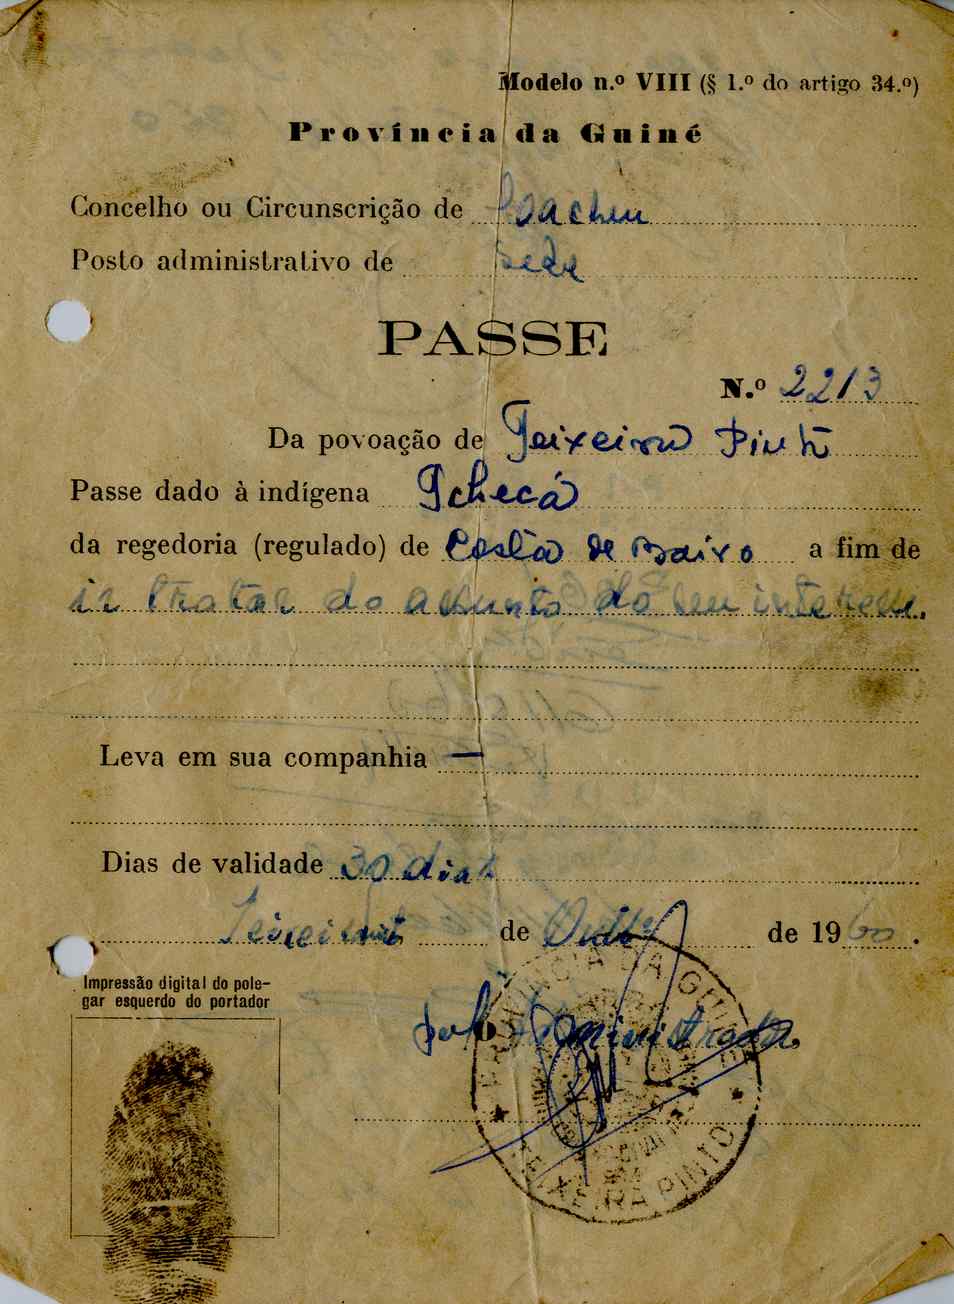 Modelo n.º VIII (§ 1.º do artigo 34.º)
Província da Guiné
Concelho ou Circunscrição de Cacheu
Posto administrativo de Sede
PASSE
N.º 2213
Da povoação de Teixeira Pinto
Passe dado à indígena Tchecá
da regedoria (regulado) de Costa de Baixo a fim de
ir tratar do assunto do seu interesse.
Leva em sua companhia —
Dias de validade 30 dias
de de 1960.
Impressão digital do pole-
gar esquerdo do portador
Administrador
PROVINCIA DA GUINE
TEIXEIRA PINTO